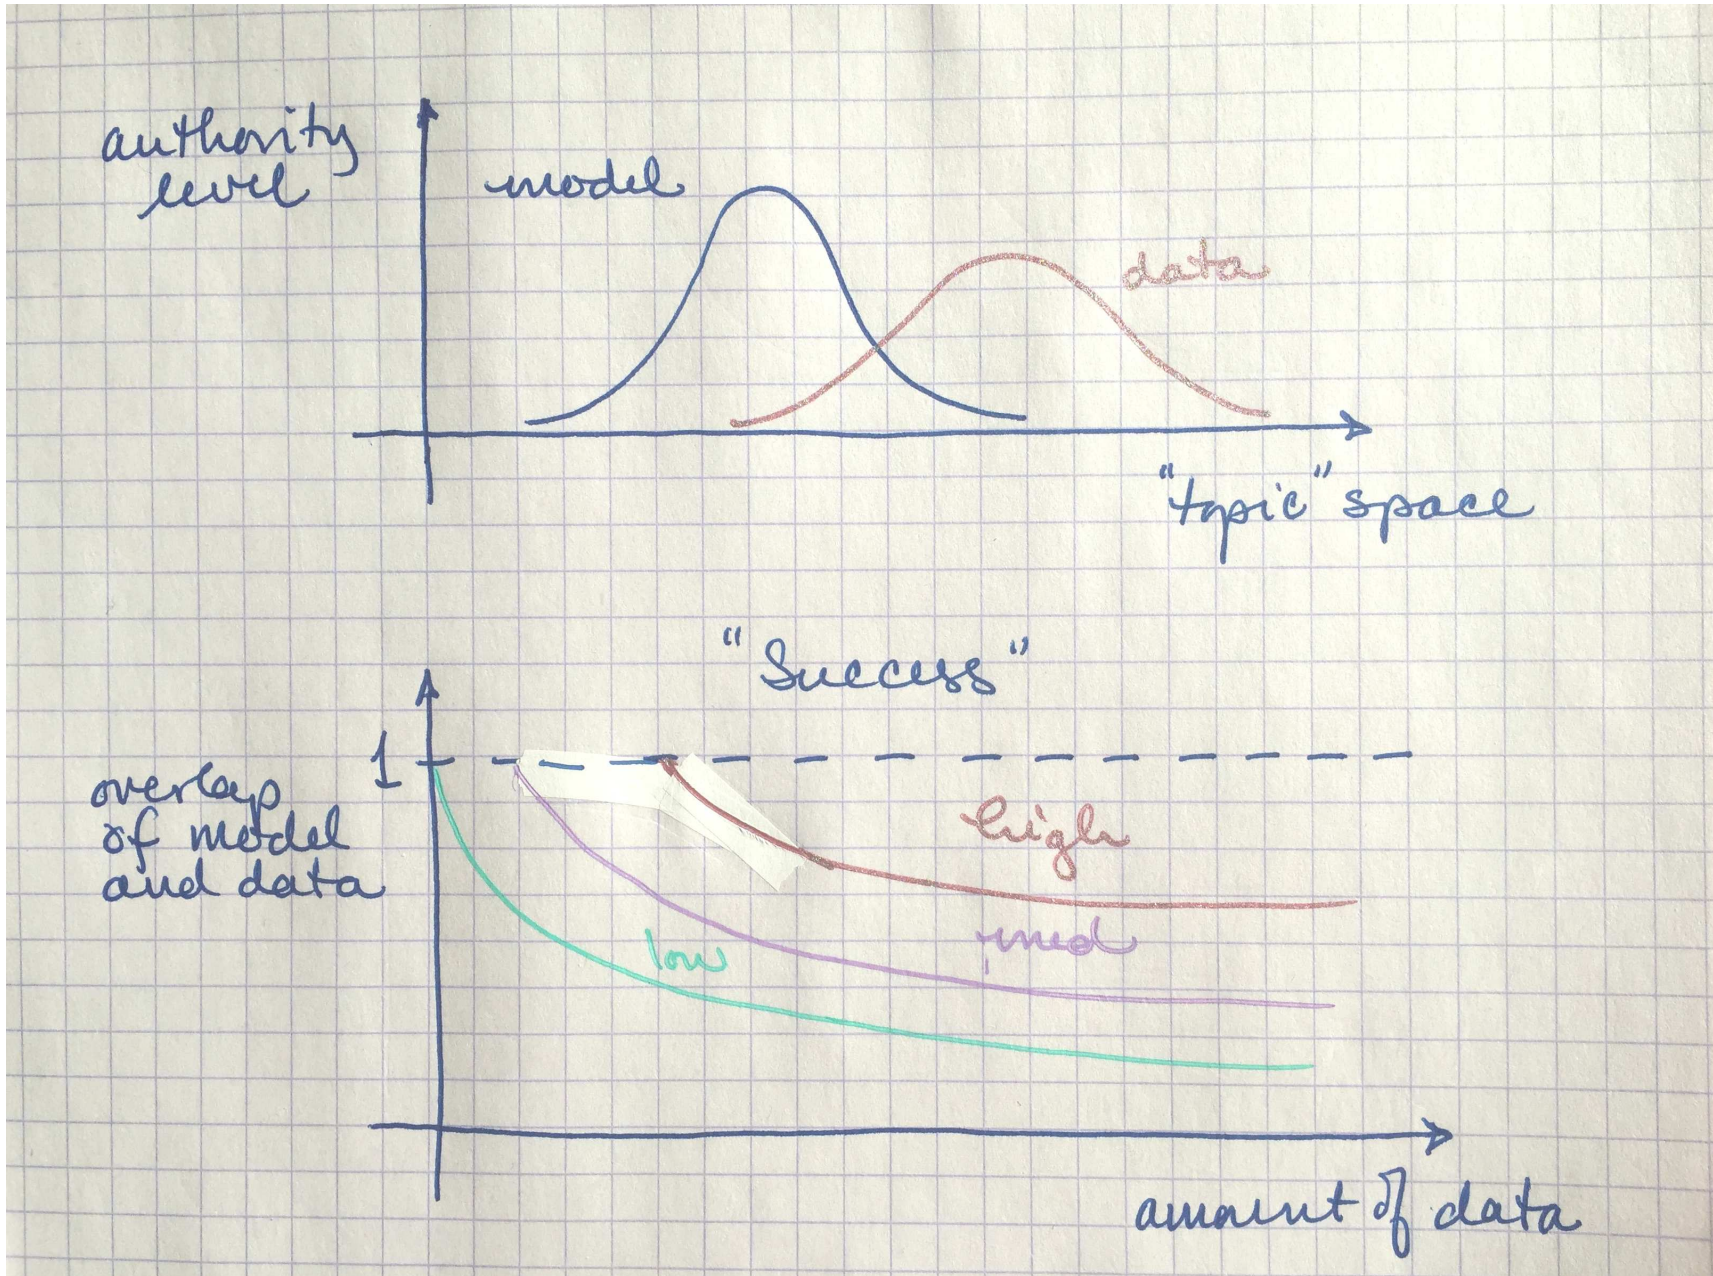 authority
level
model
data
"topic" space
"Success"
1
overlap
of model
and data
high
med
low
amount of data